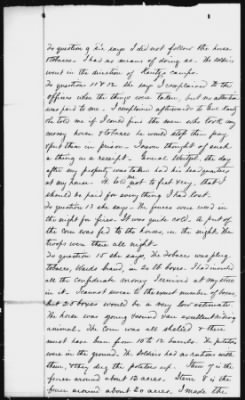 To question 9 &c. says I did not follow the horse
&tobacco. I had no means of doing so. The soldiers
went in the direction of camps.
To question 11 & 12 she says I complained to the
officers when the things were taken, but no attention
was paid to me. I complained afterwards to
He told me if I could find the man who took my
money horse & tobacco he would stop their pay
& put them in prison. I never thought of such
a thing as a receipt. General the day
after my property was taken had his head quarters
at my house. He lost 2 feet very, that I
should be paid for everything I had lost.
To question 13 she says. The fences were used in
the night for fires. It was quite cold. A part of
the corn was fed to the horses, in the night. The
troops were there all night.
To question 15 she says. The tobacco was plug
tobacco, Weeds brand, in 20 lb boxes. I had invested
all the confederate money I received at my store
in it. I cannot swear to the exact number of boxes
but 25 boxes would be a very low estimate
The horse was young & an excellent riding
animal. The corn was all shelled & there
must have been from 10 to 12 barrels. The potatoes
were in the ground. The soldiers had no rations with
them, & they dug the potatoes up. Item 7 is the
fences around about 12 acres. Item 8 is the
fence around about 20 acres. I made the